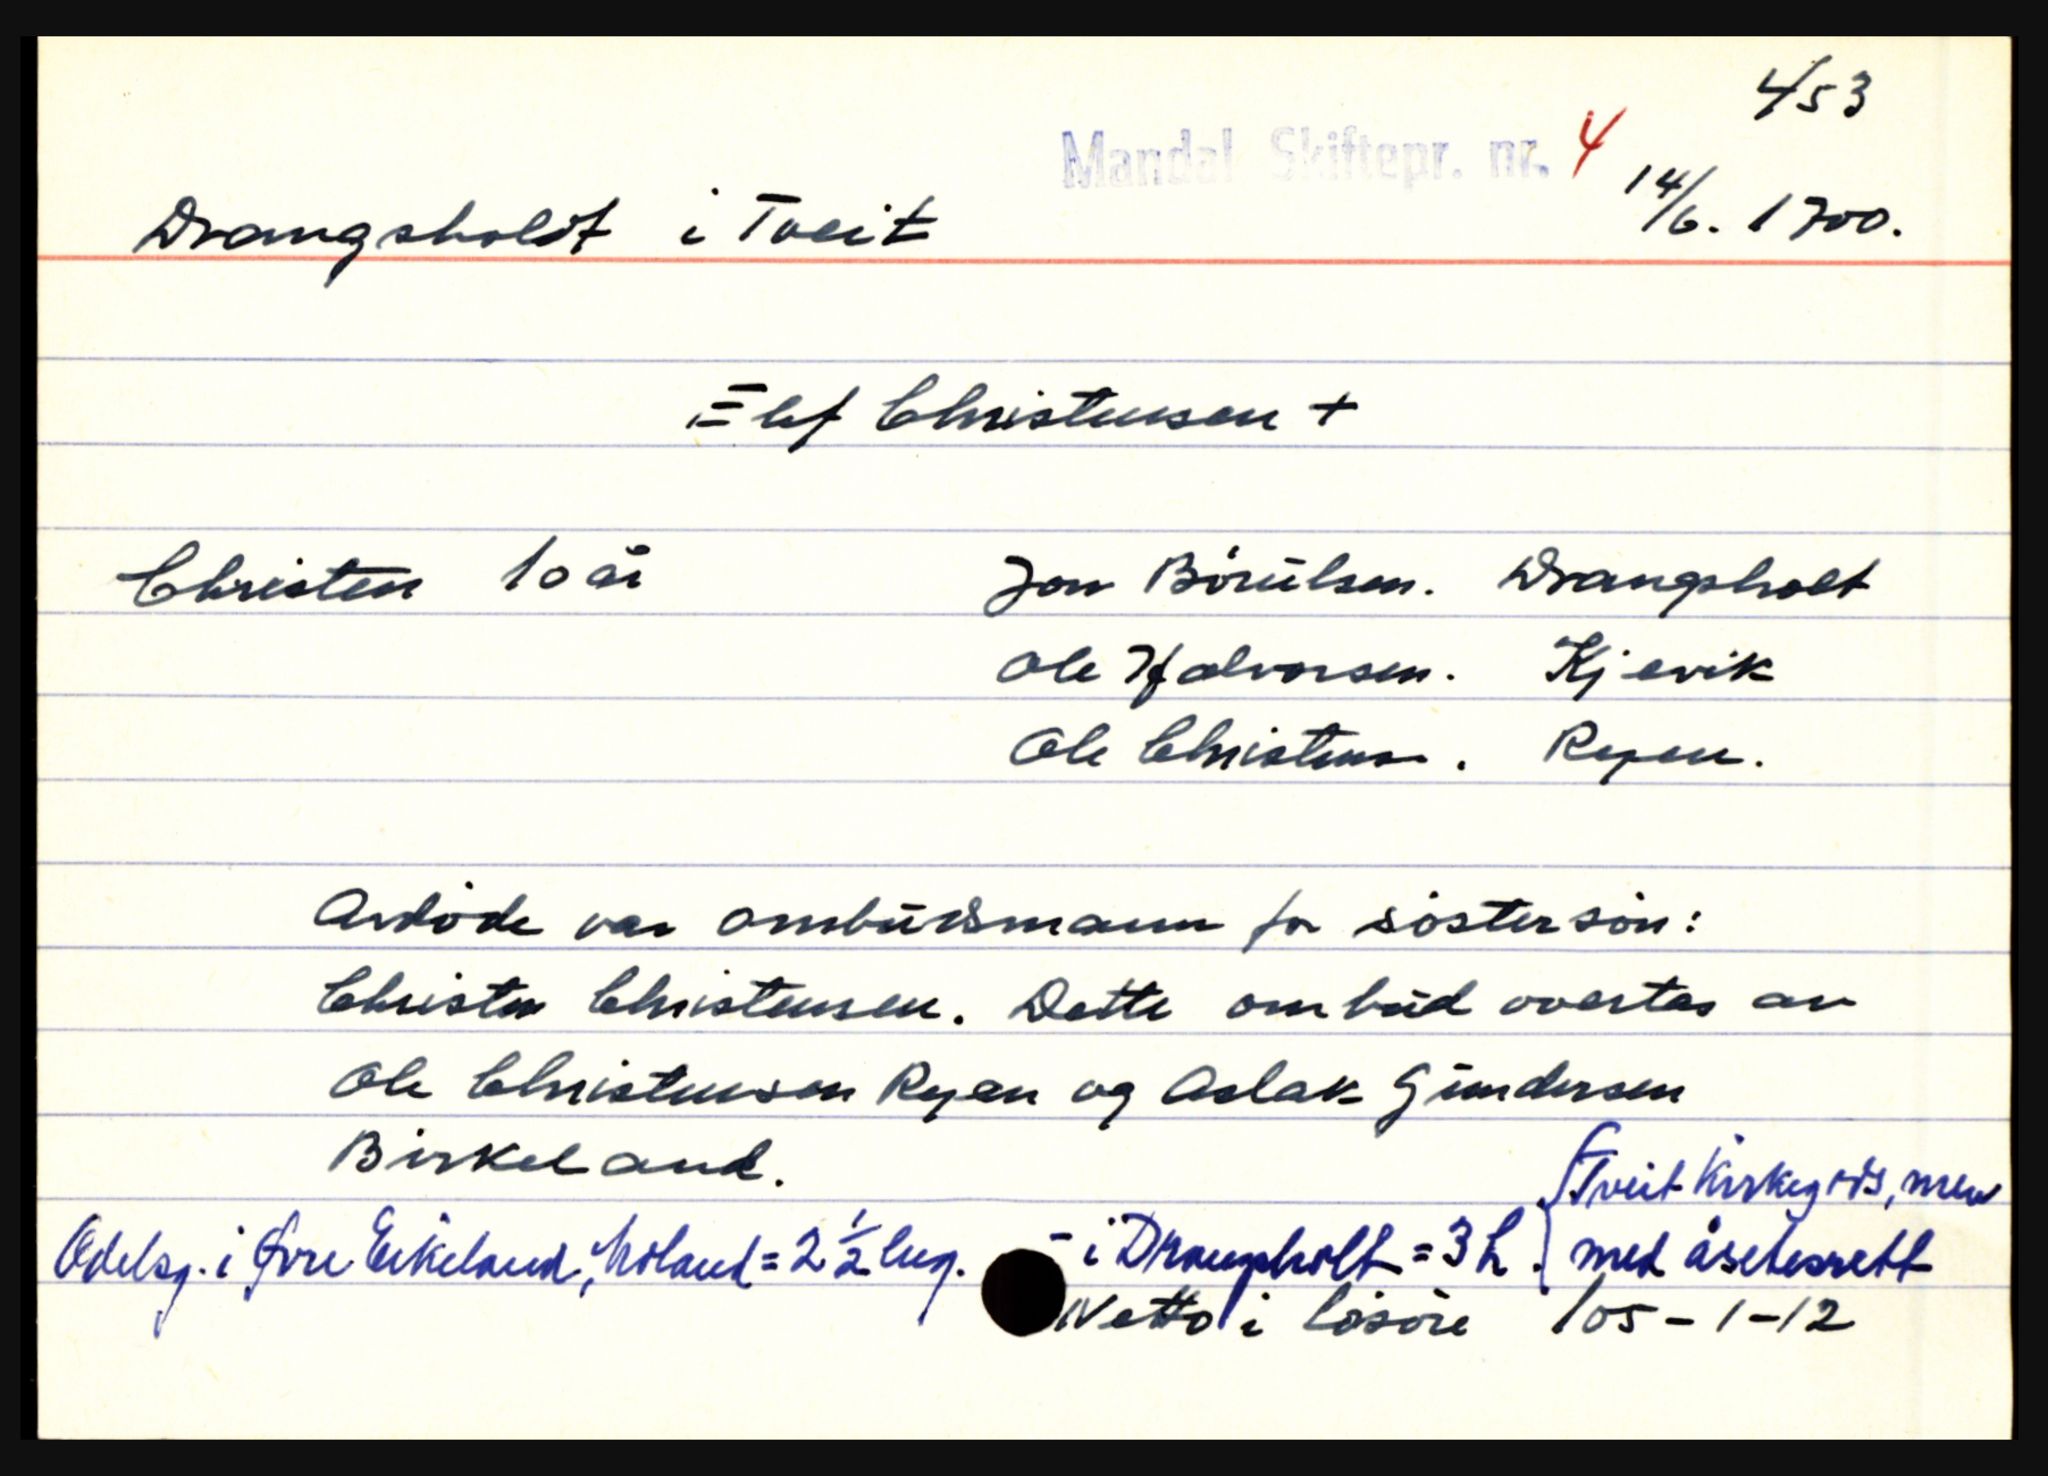 453
Mandal Skiftepr. nr. 4
14/6. 1700.
Drangsholdt i Tveit
Elef Christensen +
Christen 10 år
Jon Börülsen. Drangsholt
Ole Halvorsen. Kjevik
Ole Christensen. Ryen.
Avdöde var ombüdsmann for söstersön:
Christen Christensen. Dette ombüd overtas av
Ole Christensen Ryen og Aslak Gündersen
Birkeland.
{Tveit Kirkegods, men
Odelsg. i Øvre Eikeland, = 2 1/2 - i Drangsholt = 3 h. med åsetesrett
Netto i lösöre 105-1-12